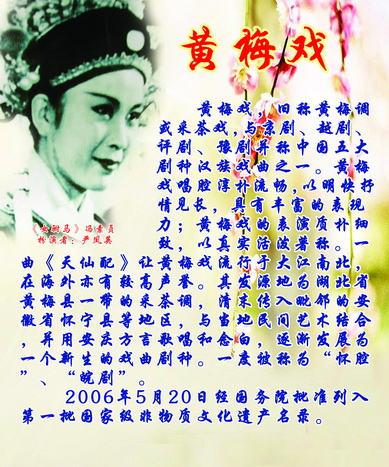 黄梅戏
黄梅戏，旧称黄梅调
或采茶戏，与京剧、越剧、
评剧、豫剧并称中国五大
剧种汉族戏曲之一。黄梅
戏唱腔淳朴流畅，以明快抒
情见长，具有丰富的表现
力；黄梅戏的表演质朴细
致，以真实活泼著称。一
曲《天仙配》让黄梅戏流行于大江南北，
在海外亦有较高声誉。其发源地为湖北省
黄梅县一带的采茶调，清末传入毗邻的安
徽省怀宁县等地区，与当地民间艺术结合
，并用安庆方言歌唱和念白，逐渐发展为
一个新生的戏曲剧种。一度被称为“怀腔
”、“皖剧”。
2006年5月20日经国务院批准列入
第一批国家级非物质文化遗产名录。
《女驸马》冯素贞
扮演者：严凤英